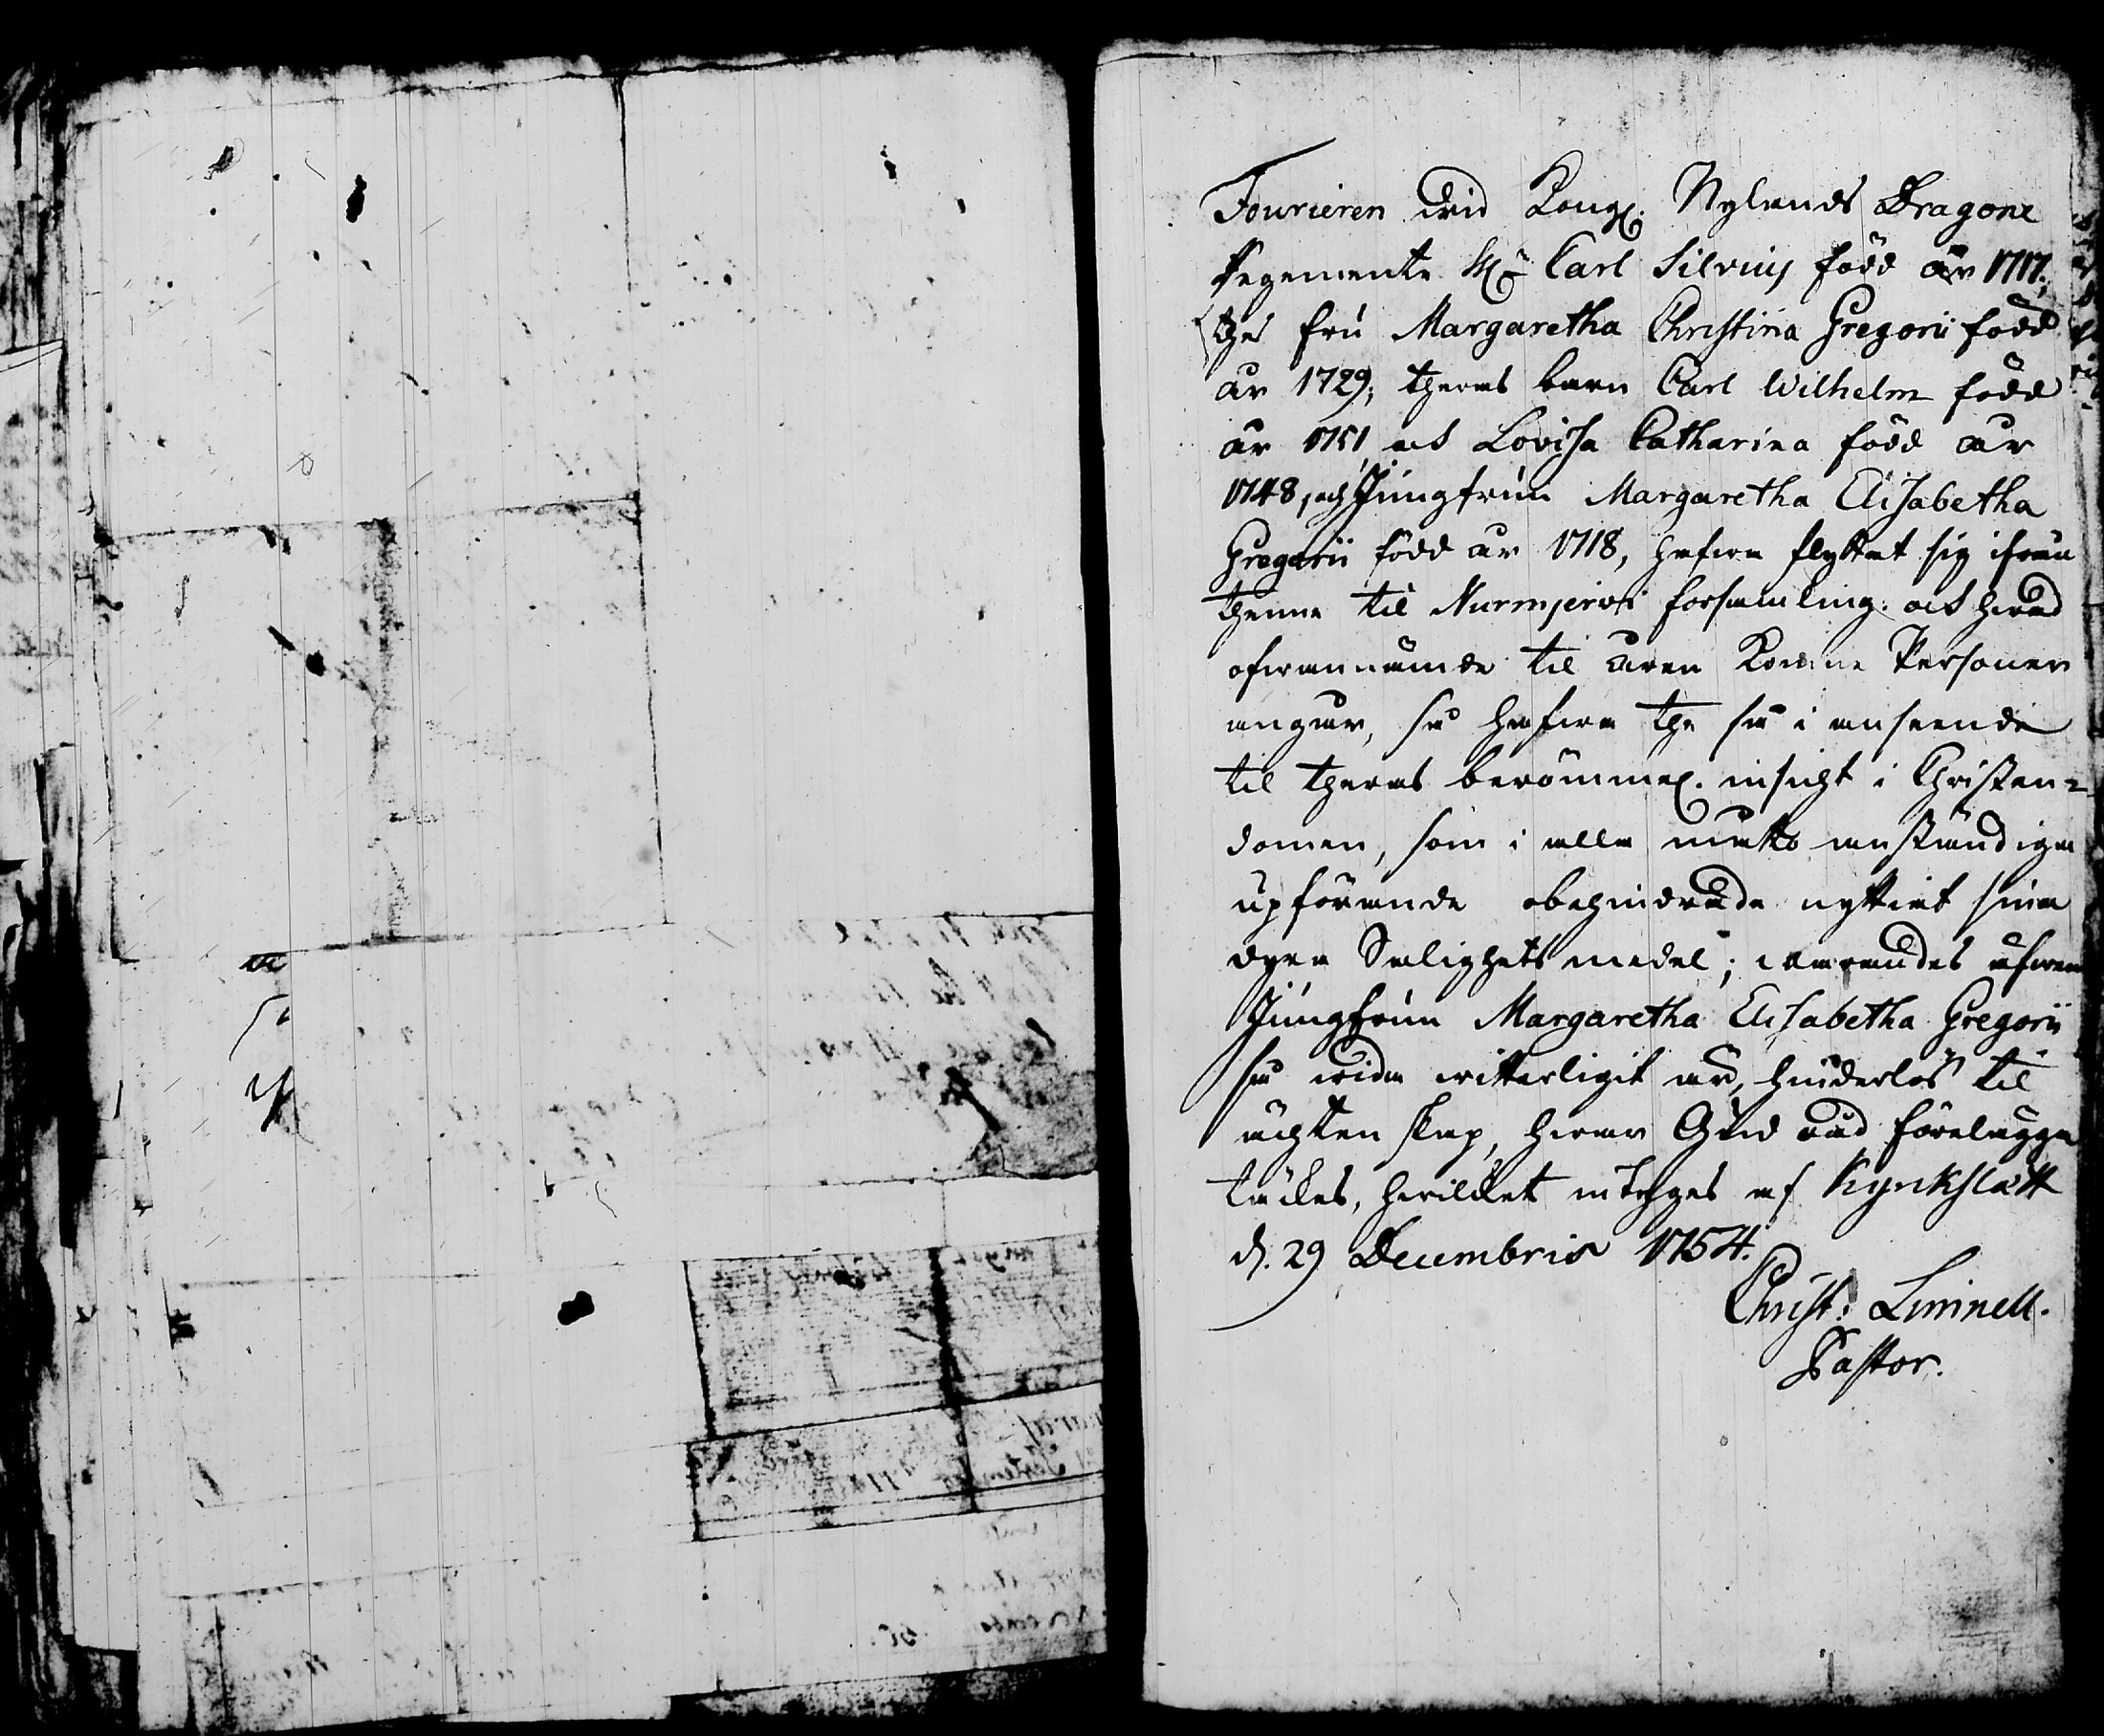 Fourieren wid Kongl. Nylands Dragone
Regemente H:r Carl Silvius född år 1717;
dess fru Margaretha Christina Gregorii född
år 1729; theras barn Carl Wilhelm född
år 1751, och Lovisa Catharina född år
1748, och Jungfrun Margaretha Elisabetha
Gregorii född år 1718, hafwa flyttat sig ifrån
thenne til Nurmjerwi församling: och hwad
ofwannämde til åren komne Personer
angår, så hafwa the så i anseende
til theras berömmel. insicht i Christen-
domen, som i alla måtto anständiga
upförande obehindrade nyttiat sina
dyra Salighets medel; warandes äfwen
Jungfrun Margaretha Elisabetha Gregorii
så wida witterligit är, hinderlös til
ächtenskap, hwar Gud råd förelägga
täckes, hwilket attesteras af Kyrkslätt
d. 29 Decembris 1754.
Christ: Limnell.
Pastor.